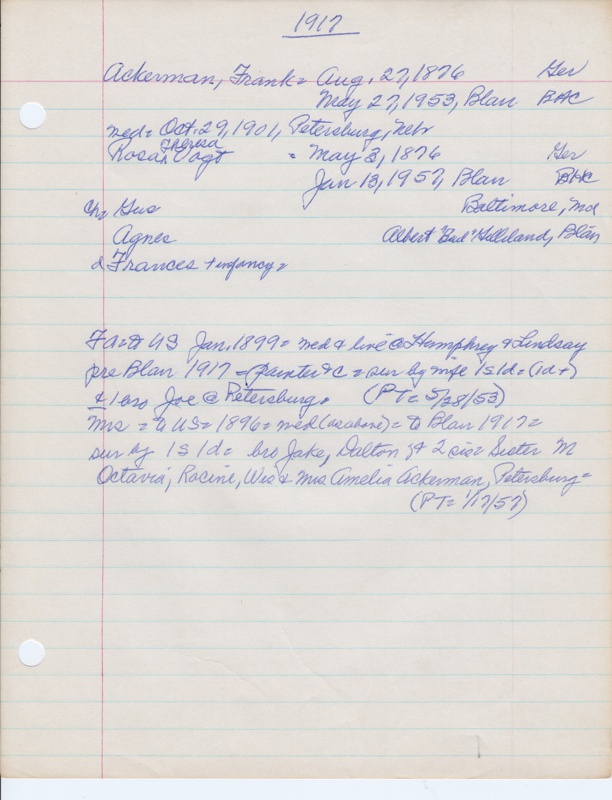 1917
Ackerman, Frank = Aug. 27, 1876 Ger
May 27, 1953, Blair BHC
med = Oct. 29, 1901, Petersburg, Nebr
Theresa
Rosa Vogt = May 3, 1876 Ger
Jan 13, 1957, Blair BHC
ch = Gus Baltimore, Md
Agnes Albert "Bud" Gilliland, Blair
d Frances + infancy =
FA = to US Jan. 1899 = med & live @ Humphrey & Lindsay
pre Blair 1917 = painter & c = sur by wife 1s 1d = (1d+)
& 1 bro Joe @ Petersburg. (PT = 5/28/53)
Mrs = to US = 1896 = med (as above) = to Blair 1917 =
sur by 1s 1d = bro Jake, Dalton, & 2 sis = Sister M
Octavia, Racine, Wis & Mrs Amelia Ackerman, Petersburg =
(PT = 1/17/57)